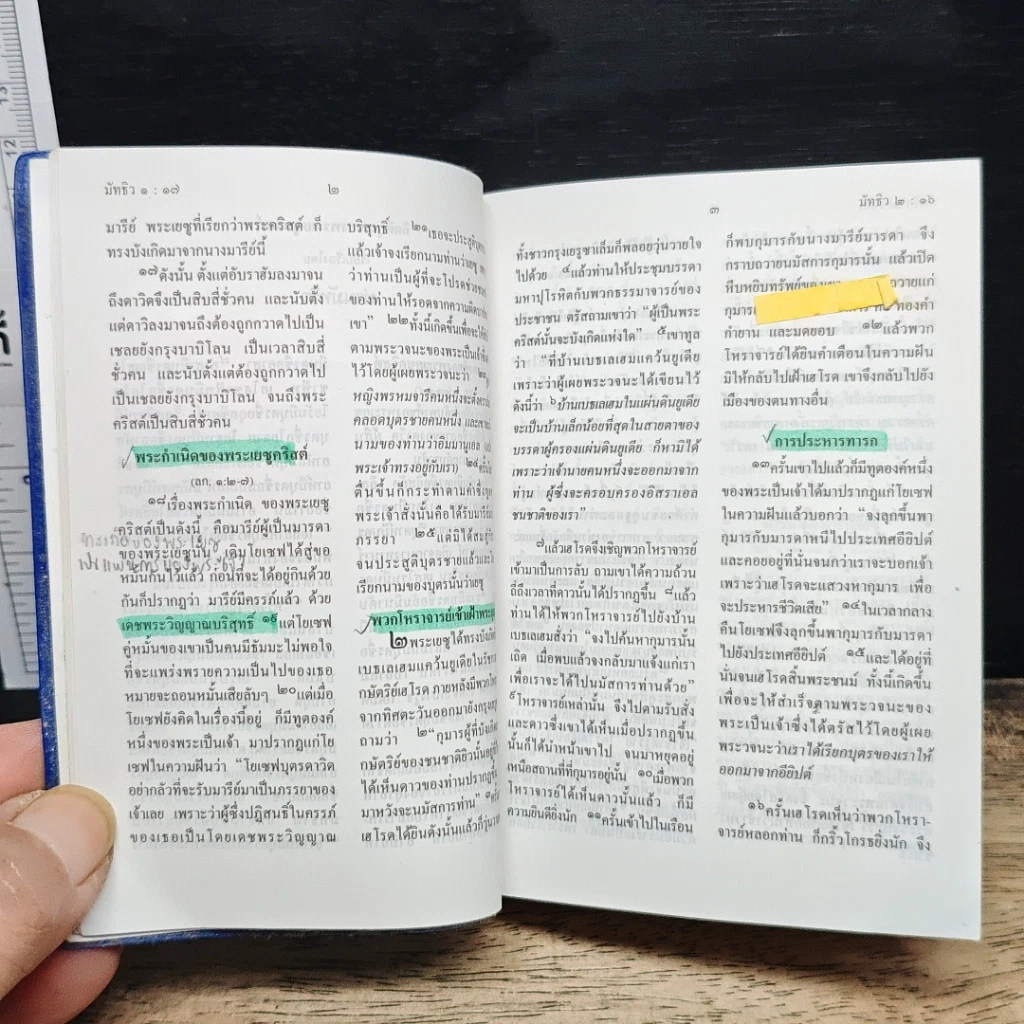 มัทธิว ๑ : ๑๗
๒
มารีย์ พระเยซูที่เรียกว่าพระคริสต์ ก็
ทรงบังเกิดมาจากนางมารีย์นี้
๑๗ดังนั้น ตั้งแต่อับราฮัมลงมาจน
ถึงดาวิดจึงเป็นสิบสี่ชั่วคน และนับตั้ง
แต่ดาวิลงมาจนถึงต้องถูกกวาดไปเป็น
เชลยยังกรุงบาบิโลน เป็นเวลาสิบสี่
ชั่วคน และนับตั้งแต่ต้องถูกกวาดไป
เป็นเชลยยังกรุงบาบิโลน จนถึงพระ
คริสต์เป็นสิบสี่ชั่วคน
พระกำเนิดของพระเยซูคริสต์
(ลก. ๑:๒-๗)
๑๘เรื่องพระกำเนิด ของพระเยซู
คริสต์เป็นดังนี้ คือมารีย์ผู้เป็นมารดา
ของพระเยซูนั้น เดิมโยเซฟได้สู่ขอ
หมั้นกันไว้แล้ว ก่อนที่จะได้อยู่กินด้วย
กันก็ปรากฏว่า มารีย์มีครรภ์แล้ว ด้วย
เดชพระวิญญาณบริสุทธิ์ ๑๙แต่โยเซฟ
คู่หมั้นของเขาเป็นคนมีธัมมะไม่พอใจ
ที่จะแพร่งพรายความเป็นไปของเธอ
หมายจะถอนหมั้นเสียลับๆ ๒๐แต่เมื่อ
โยเซฟยังคิดในเรื่องนี้อยู่ ก็มีทูตองค์
หนึ่งของพระเป็นเจ้า มาปรากฏแก่โย
เซฟในความฝันว่า “โยเซฟบุตรดาวิด
อย่ากลัวที่จะรับมารีย์มาเป็นภรรยาของ
เจ้าเลย เพราะว่าผู้ซึ่งปฏิสนธิ์ในครรภ์
ของเธอเป็นโดยเดชพระวิญญาณ
บริสุทธิ์ ๒๑เธอจะประสูติบุตร
แล้วเจ้าจงเรียกนามท่านว่าเยซู
ว่าท่านเป็นผู้ที่จะโปรดช่วย
ของท่านให้รอดจากความผิด
เขา” ๒๒ทั้งนี้เกิดขึ้นเพื่อจะให้
ตามพระวจนะของพระเป็นเจ้า
ไว้โดยผู้เผยพระวจนะว่า
หญิงพรหมจารีคนหนึ่งจะตั้งครรภ์
คลอดบุตรชายคนหนึ่ง และ
นามของท่านว่าอิมมานูเอล
พระเจ้าทรงอยู่กับเรา) ๒๔
ตื่นขึ้นก็กระทำตามคำซึ่ง
พระเจ้าสั่งนั้นคือได้รับมารีย์
ภรรยา ๒๕แต่มิได้สมสู่
จนประสูติบุตรชายแล้วและ
เรียกนามของบุตรนั้นว่าเยซู
พวกโหราจารย์เข้าเฝ้าพระ
๒ พระเยซูได้ทรงบังเกิด
เบธเลเฮมแคว้นยูเดียในรัช
กษัตริย์เฮโรด ภายหลังมีพวก
จากทิศตะวันออกมายังกรุง
ถามว่า ๒“กุมารผู้ที่บังเกิด
กษัตริย์ของชนชาติยิวนั้นอยู่
ได้เห็นดาวของท่านปรากฏขึ้น
มาหวังจะนมัสการท่าน”
เฮโรดได้ยินดังนั้นแล้วก็วุ่นวาย
๓
มัทธิว ๒ : ๑๖
ทั้งชาวกรุงเยรูซาเล็มก็พลอยวุ่นวายใจ
ไปด้วย ๔แล้วท่านให้ประชุมบรรดา
มหาปุโรหิตกับพวกธรรมาจารย์ของ
ประชาชน ตรัสถามเขาว่า “ผู้เป็นพระ
คริสต์นั้นจะบังเกิดแห่งใด” ๕เขาทูล
ว่า “ที่บ้านเบธเลเฮมแคว้นยูเดีย
เพราะว่าผู้เผยพระวจนะได้เขียนไว้
ดังนี้ว่า ๖บ้านเบธเลเฮมในแผ่นดินยูเดีย
จะเป็นบ้านเล็กน้อยที่สุดในสายตาของ
บรรดาผู้ครองแผ่นดินยูเดีย ก็หามิได้
เพราะว่าเจ้านายคนหนึ่งจะออกมาจาก
ท่าน ผู้ซึ่งจะครอบครองอิสราเอล
ชนชาติของเรา”
๗แล้วเฮโรดจึงเชิญพวกโหราจารย์
เข้ามาเป็นการลับ ถามเขาได้ความถ้วน
ถี่ถึงเวลาที่ดาวนั้นได้ปรากฏขึ้น ๘แล้ว
ท่านได้ให้พวกโหราจารย์ไปยังบ้าน
เบธเลเฮมสั่งว่า “จงไปค้นหากุมารนั้น
เถิด เมื่อพบแล้วจงกลับมาแจ้งแก่เรา
เพื่อเราจะได้ไปนมัสการท่านด้วย”
๙โหราจารย์เหล่านั้น จึงไปตามรับสั่ง
และดาวซึ่งเขาได้เห็นเมื่อปรากฏขึ้น
นั้นก็ได้นำหน้าเขาไป จนมาหยุดอยู่
เหนือสถานที่ที่กุมารอยู่นั้น ๑๐เมื่อพวก
โหราจารย์ได้เห็นดาวนั้นแล้ว ก็มี
ความยินดียิ่งนัก ๑๑ครั้นเข้าไปในเรือน
ก็พบกุมารกับนางมารีย์มารดา จึง
กราบถวายนมัสการกุมารนั้น แล้วเปิด
หีบหยิบทรัพย์ของ วายแก่
กุมาร ทองคำ
กำยาน และมดยอบ ๑๒แล้วพวก
โหราจารย์ได้ยินคำเตือนในความฝัน
มิให้กลับไปเฝ้าเฮโรด เขาจึงกลับไปยัง
เมืองของตนทางอื่น
การประหารทารก
๑๓ครั้นเขาไปแล้วก็มีทูตองค์หนึ่ง
ของพระเป็นเจ้าได้มาปรากฏแก่โยเซฟ
ในความฝันแล้วบอกว่า “จงลุกขึ้นพา
กุมารกับมารดาหนีไปประเทศอียิปต์
และคอยอยู่ที่นั่นจนกว่าเราจะบอกเจ้า
เพราะว่าเฮโรดจะแสวงหากุมาร เพื่อ
จะประหารชีวิตเสีย” ๑๔ในเวลากลาง
คืนโยเซฟจึงลุกขึ้นพากุมารกับมารดา
ไปยังประเทศอียิปต์ ๑๕และได้อยู่ที่
นั่นจนเฮโรดสิ้นพระชนม์ ทั้งนี้เกิดขึ้น
เพื่อจะให้สำเร็จตามพระวจนะของ
พระเป็นเจ้าซึ่งได้ตรัสไว้โดยผู้เผย
พระวจนะว่าเราได้เรียกบุตรของเราให้
ออกมาจากอียิปต์
๑๖ครั้นเฮโรดเห็นว่าพวกโหรา-
จารย์หลอกท่าน ก็กริ้วโกรธยิ่งนัก จึง